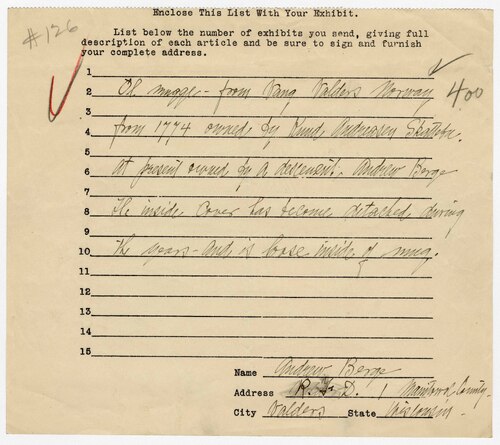 Enclose This List With Your Exhibit.
#126
List below the number of exhibits you send, giving full
description of each article and be sure to sign and furnish
your complete address.
1
2 Öl mugge - from Vang, Valders Norway 400
3
4 from 1774 owned by Knud Andreasen
5
6 At present owned by a descenent. Andrew Berge
7
8 The inside cover has become detached during
9
10 the years - and is loose inside of mug.
11
12
13
14
15
Name Andrew Berge
Address R.F.D. 1 Manitowoc County.
City Valders State Wisconsin.